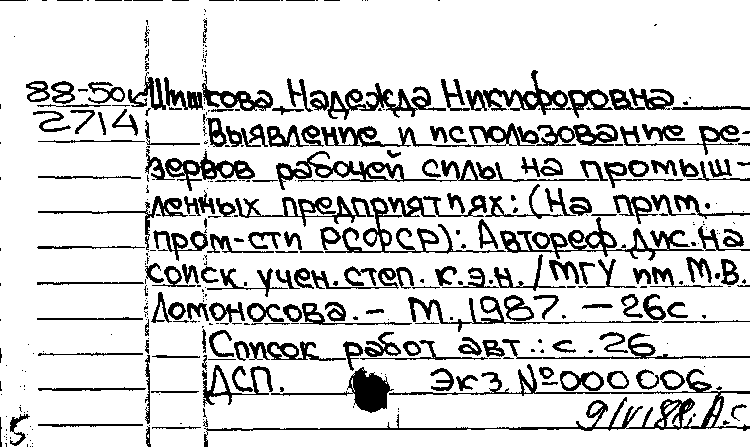 88-50к Шишкова, Надежда Никифоровна.
2714 Выявление и использование ре-
зервов рабочей силы на промыш-
ленных предприятиях: (На прим.
пром-сти РСФСР): Автореф. дис. на
соиск. учен. степ. к.э.н. /МГУ им. М.В.
Ломоносова. – М., 1987. – 26с.
Список работ авт.: с. 26.
ДСП. Экз. №000006.
9/VI 88. А.С
5